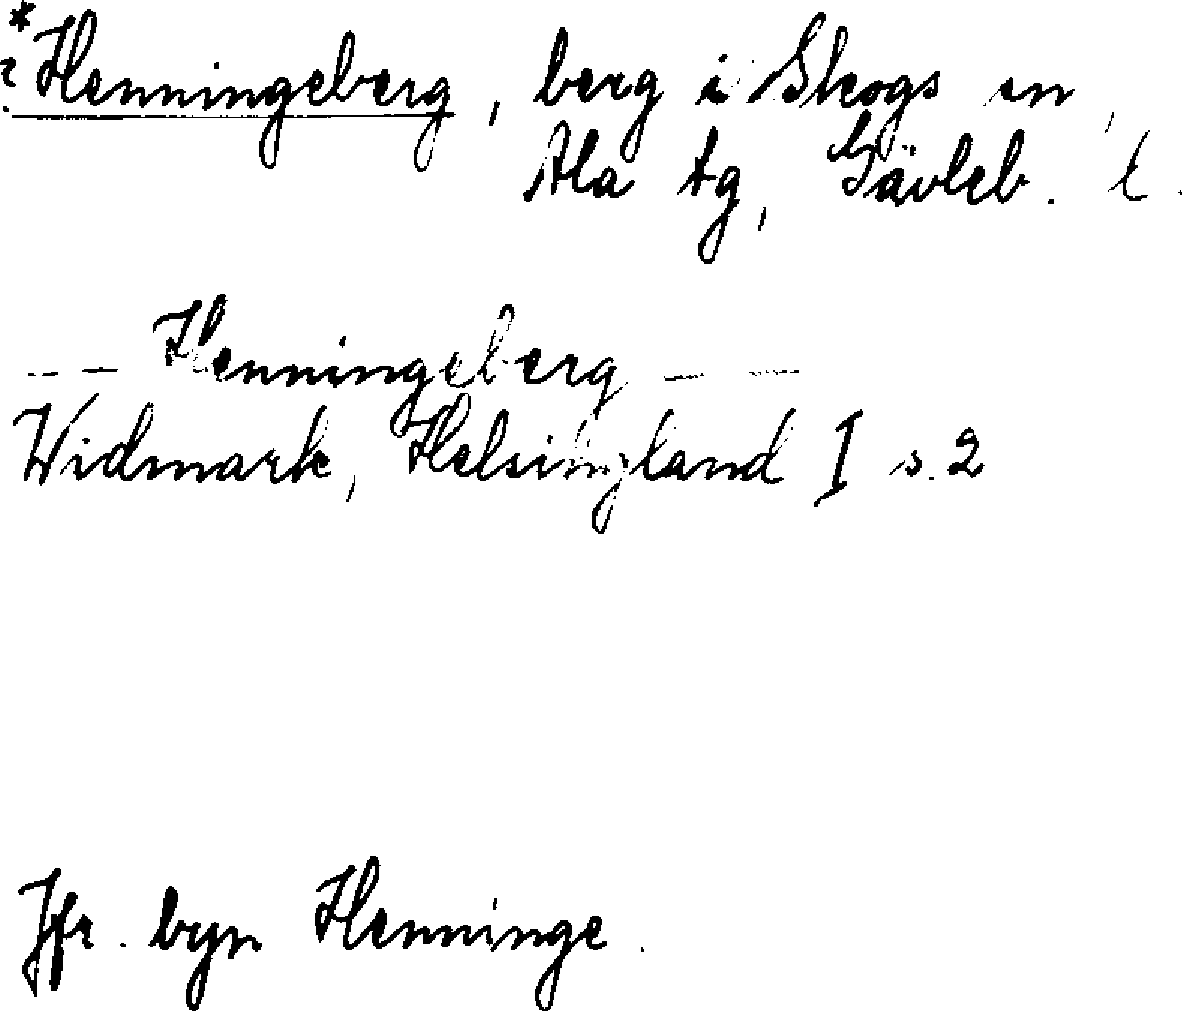 *
? Henningeberg, berg i Skogs sn,
Ala tg, Gävleb. l.
-- Henningeberg --
Widmark, Helsingland I s. 2
Jfr. byn Henninge.